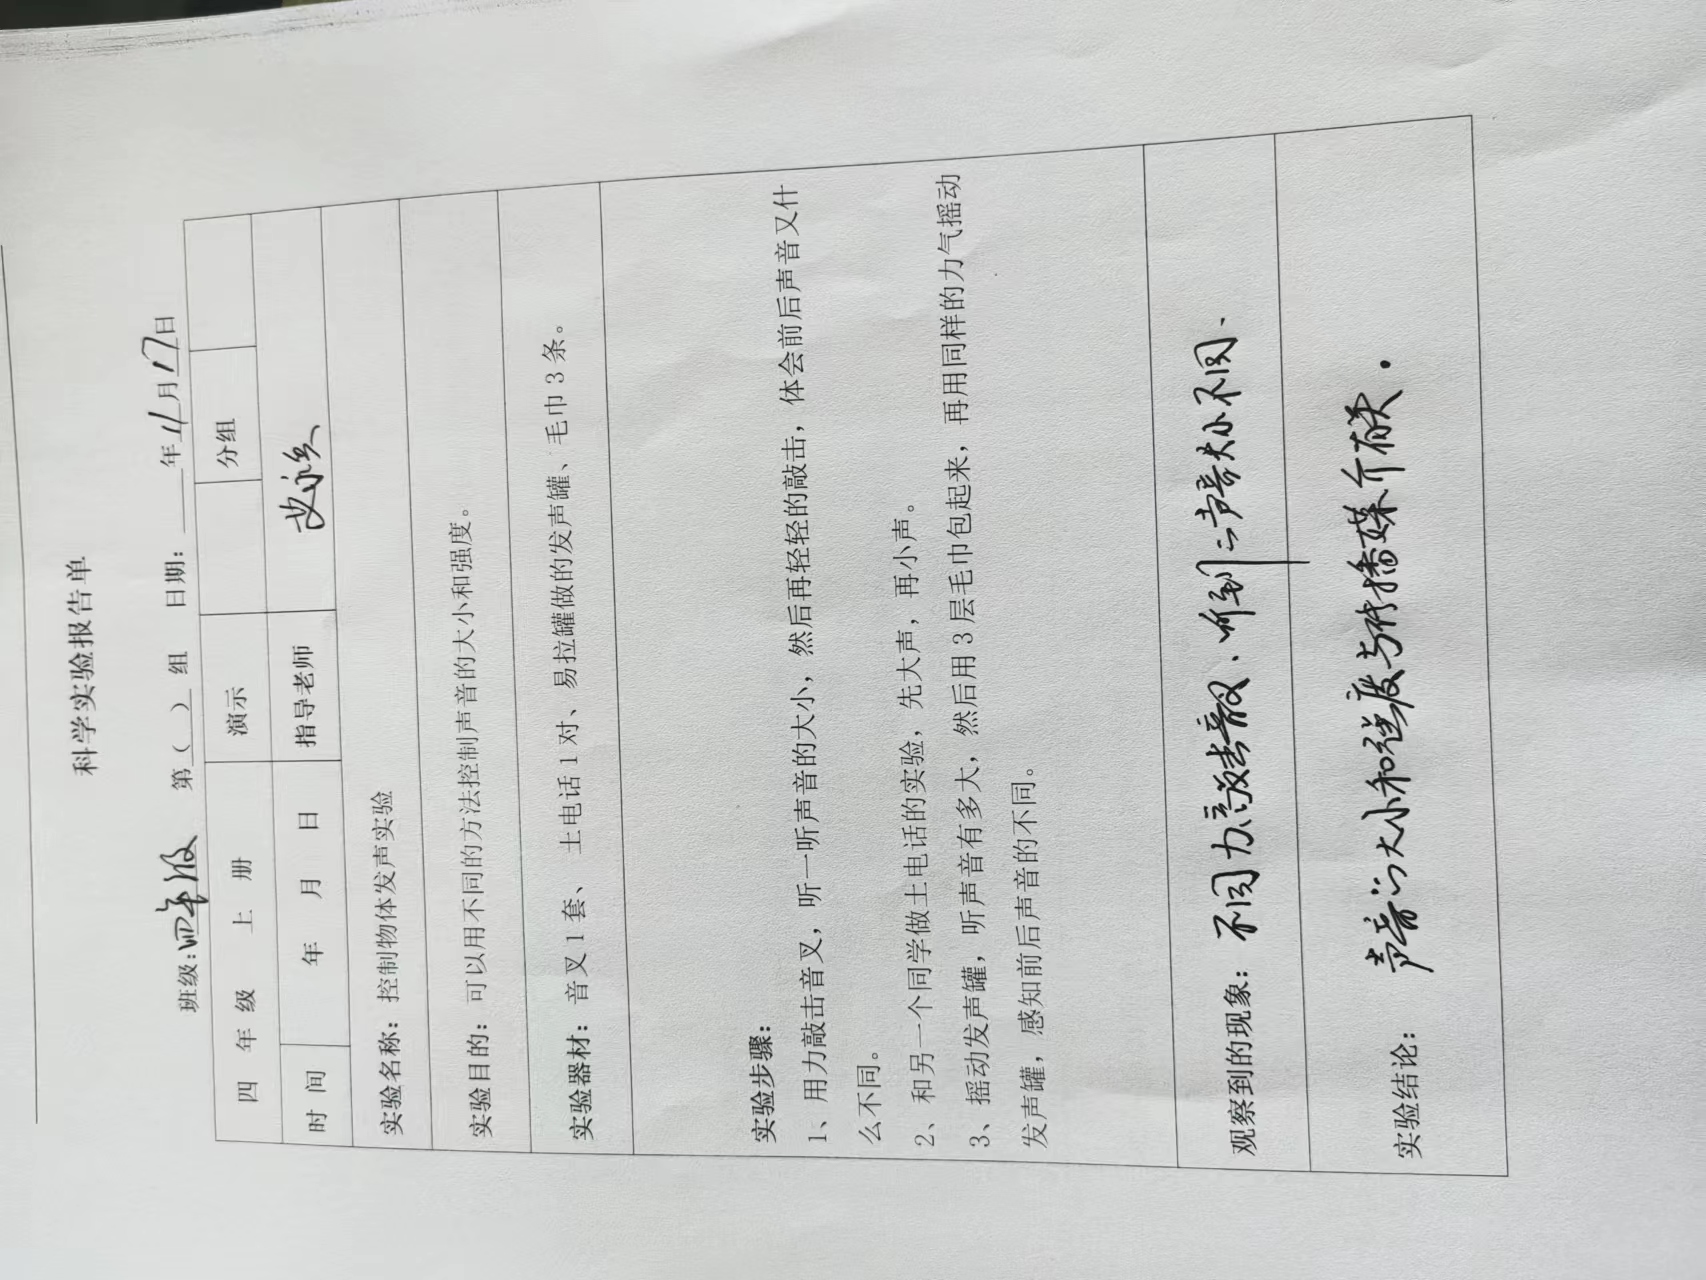 科学实验报告单
班级:四年级 第（ ）组 日期: 年 11 月 17 日
四 年 级 上 册 演示 分组
时 间 年 月 日 指导老师
实验名称：控制物体发声实验
实验目的：可以用不同的方法控制声音的大小和强度。
实验器材：音叉 1 套、 土电话 1 对、易拉罐做的发声罐、毛巾 3 条。
实验步骤：
1、用力敲击音叉，听一听声音的大小，然后再轻轻的敲击，体会前后声音又什
么不同。
2、和另一个同学做土电话的实验，先大声，再小声。
3、摇动发声罐，听声音有多大，然后用 3 层毛巾包起来，再用同样的力气摇动
发声罐，感知前后声音的不同。
观察到的现象：不同力度敲击音叉、听到的声音大小不同、
实验结论：声音的大小和强度与传播媒介有关.